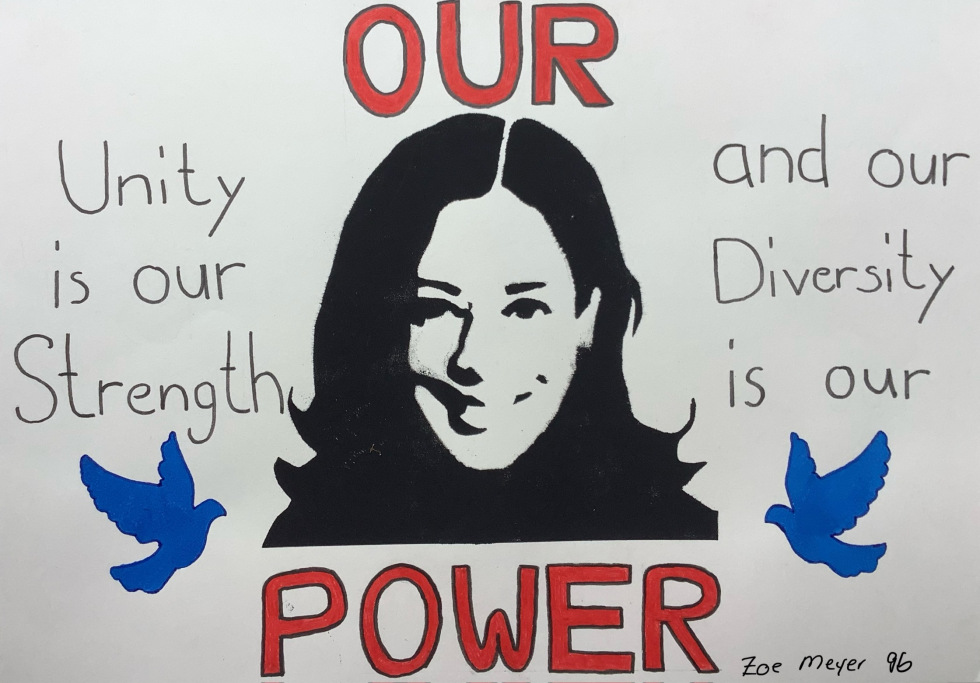 OUR
Unity
is our
Strength
and our
Diversity
is our
POWER
Zoe Meyer 9b